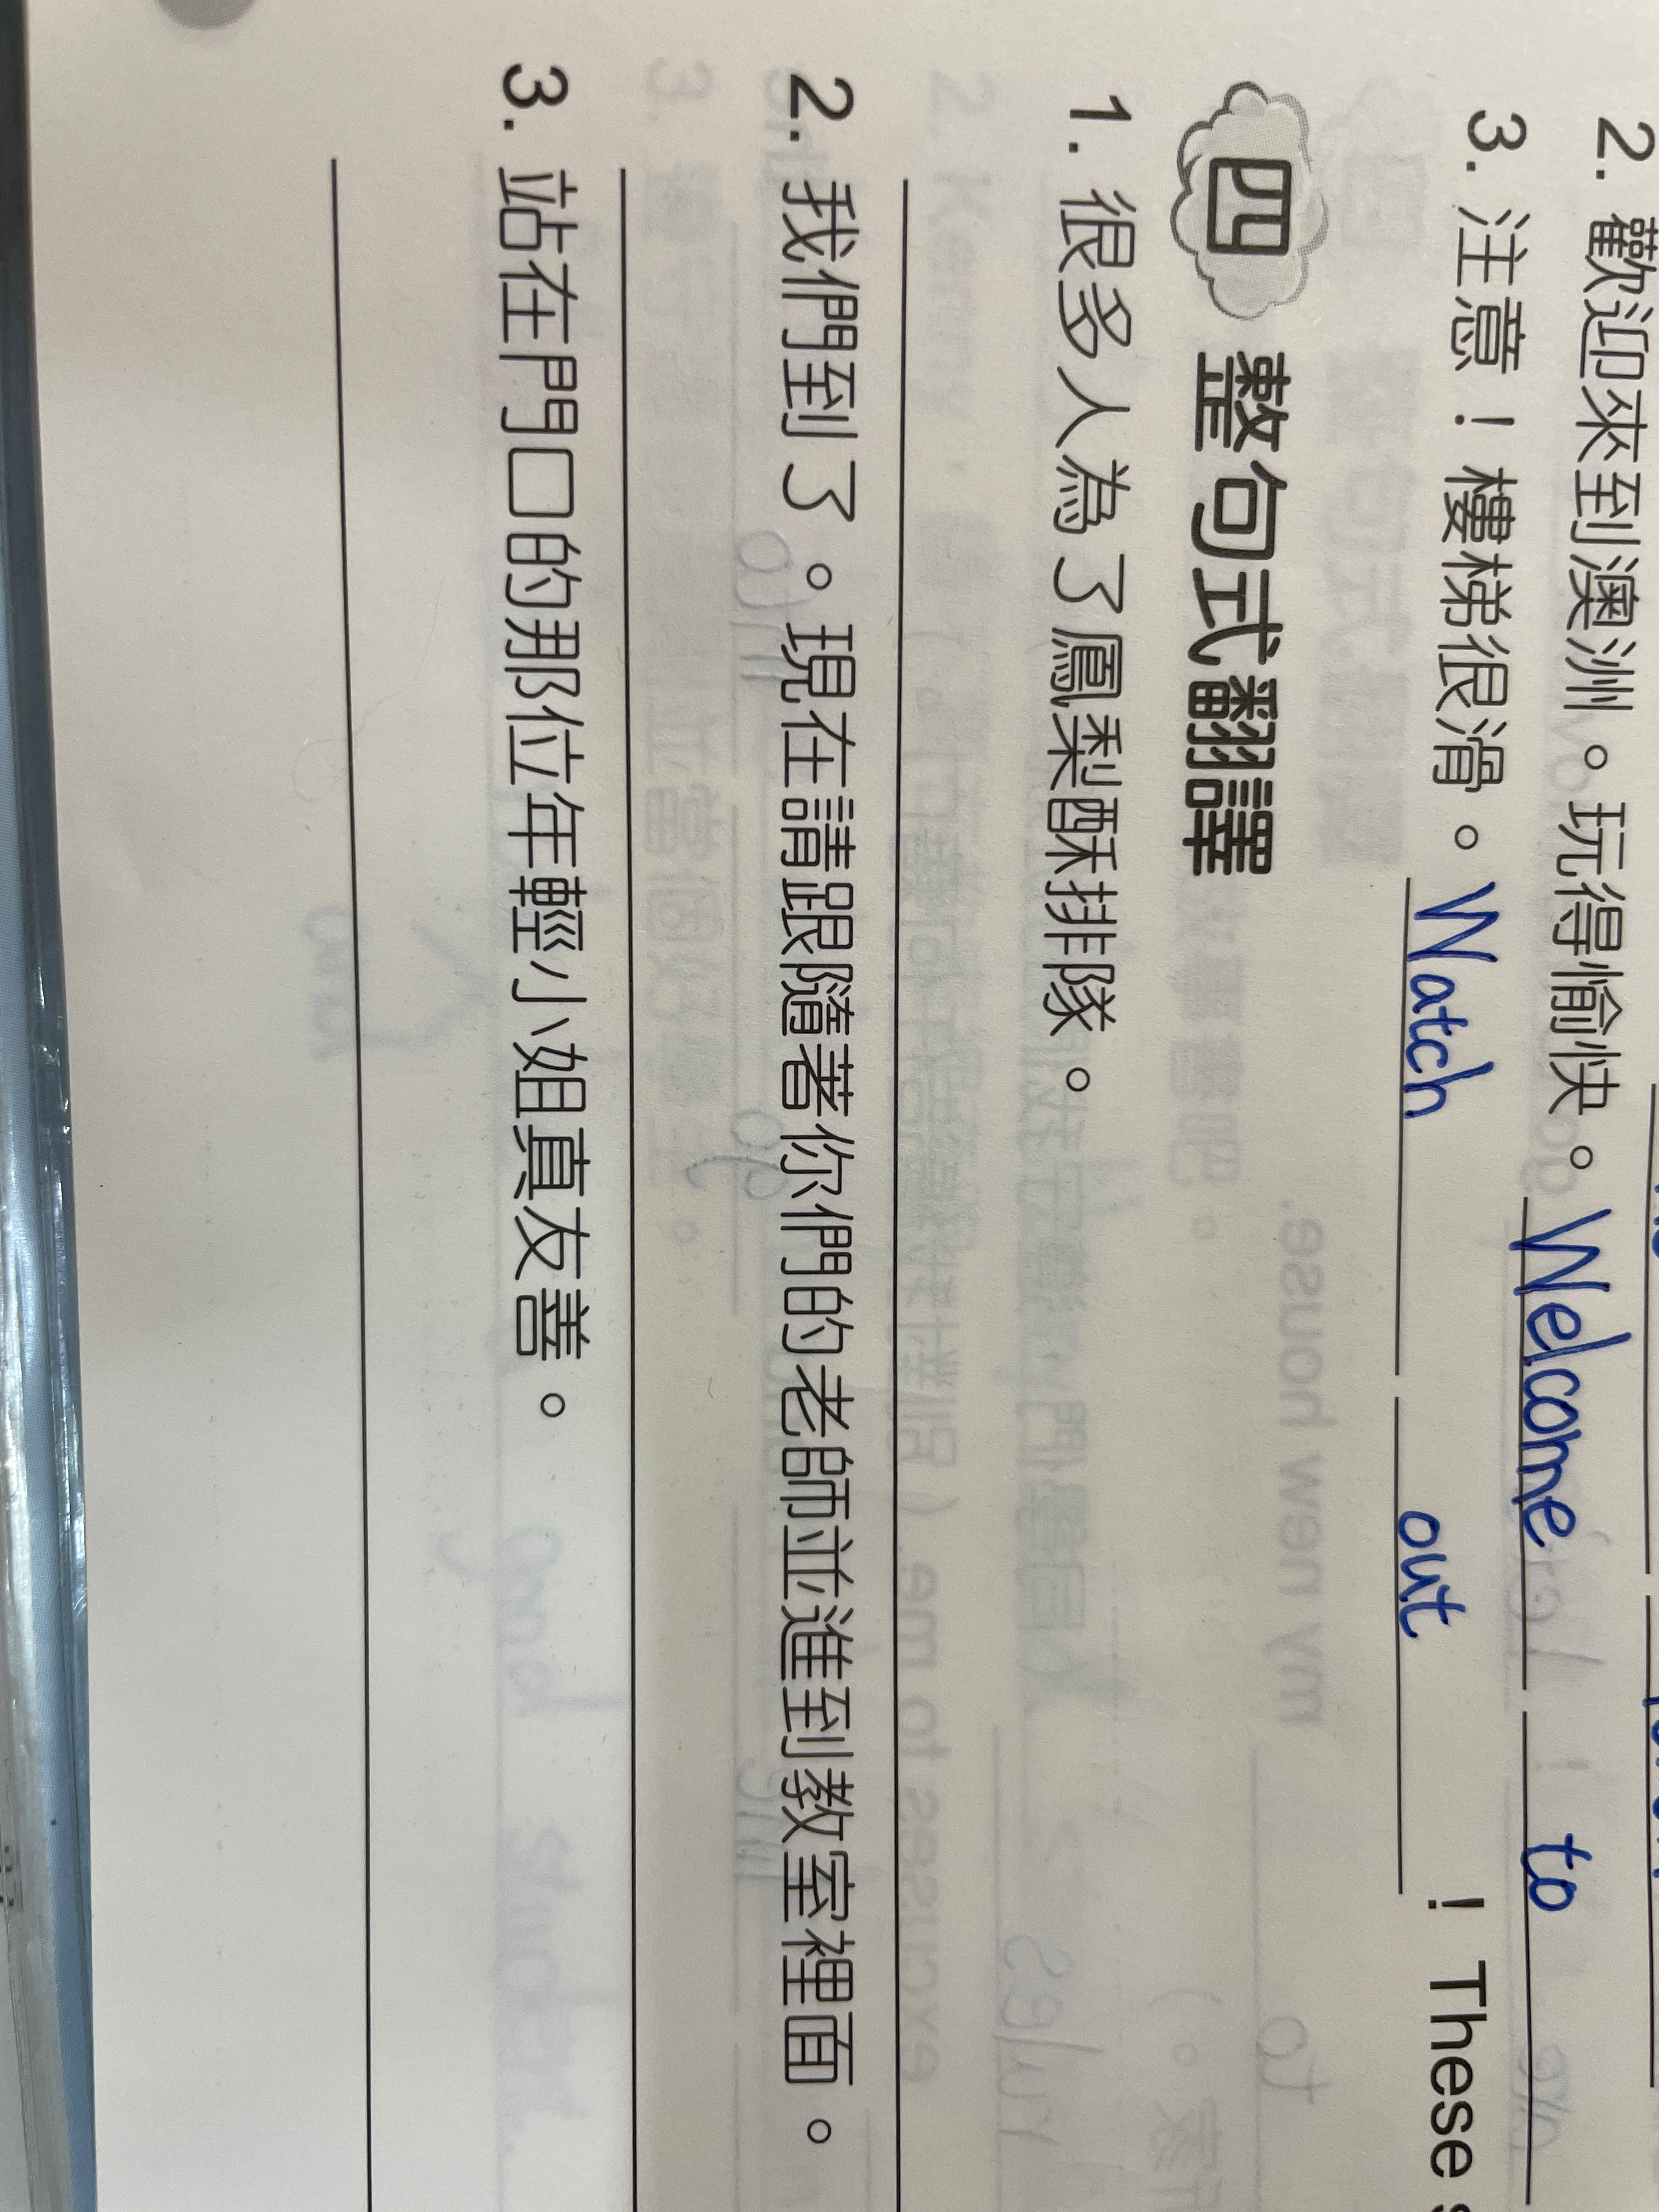 2. 歡迎來到澳洲。玩得愉快。 Welcome to
3. 注意！樓梯很滑。 Watch out ! These
四 整句式翻譯
1. 很多人為了鳳梨酥排隊。
2. 我們到了。現在請跟隨著你們的老師並進到教室裡面。
3. 站在門口的那位年輕小姐真友善。